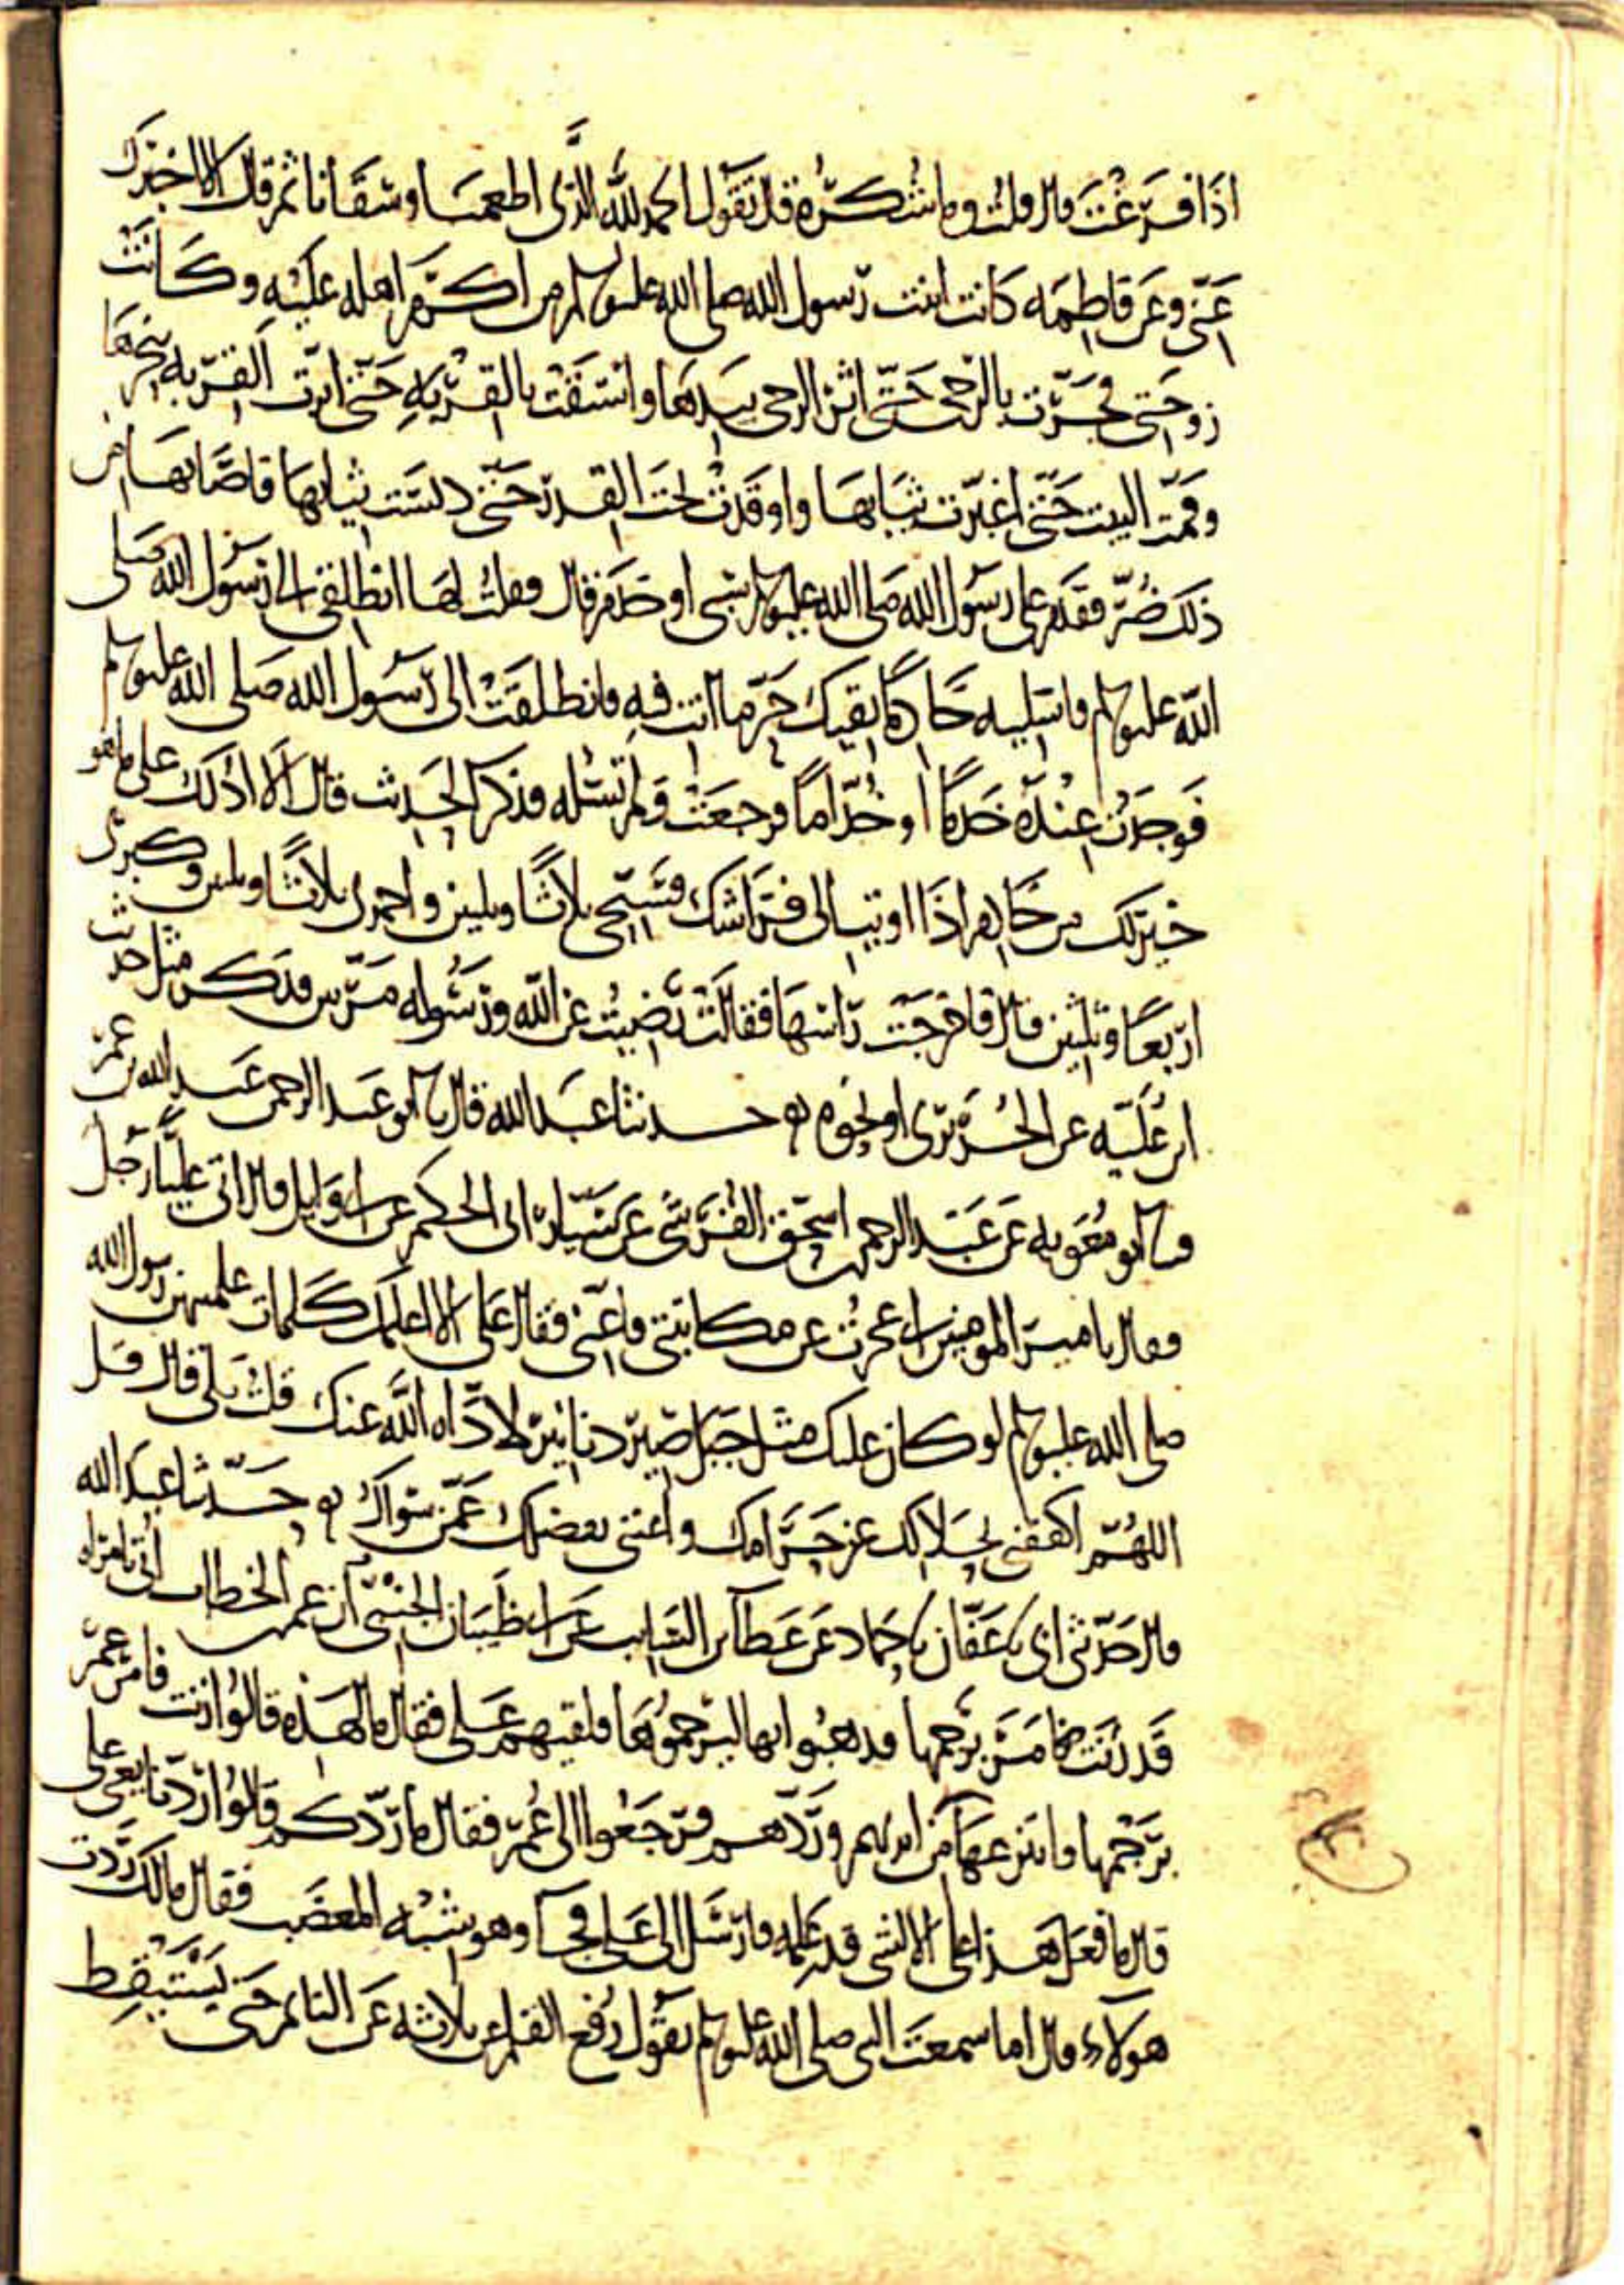 اذَا فَرَغْتَ قال قلت وما شُكرُه قال تقول الحمد لله الذى اطعمنا وسقانا ثم قال الا اخبرك
عنّى وعن فاطمه كانت ابنت رسول الله صلى الله عليه وسلم من اكرم اهله عليه وكانت
زوجتى فجرّت بالرحى حتى اثر الرحى بيدها واستقت بالقربه حتى اثرت القربه بنحرها
وقمّت البيت حتى اغبرّت ثيابها واوقدت تحت القدر حتى دنست ثيابها فاصابها من
ذلك ضُرّ فقدم على رسول الله صلى الله عليه وسلم بسبى او خدم قال فقلت لها انطلقى الى رسول الله صلى
الله عليه وسلم فاسئليه خادمًا يقيك حرّ ما انت فيه فانطلقت الى رسول الله صلى الله عليه وسلم
فوجدت عنده خدمًا او خُدّاما فرجعت ولم تسئله فذكر الحديث قال الا ادلك على ما هو
خير لك من خادم اذا اويت الى فراشك فسبّحى ثلاثًا وثلثين واحمدى ثلاثًا وثلثين وكبرى
اربعًا وثلثين قال فاخرجت راسها فقالت رضيت عن الله ورسوله مرتين فذكر مثل حديث
ابن عُلَيّه عن الجُرَيرى او نحوه حدثنا عبد الله قال نا ابو عبد الرحمن عبد الله بن عمر
نا ابو معويه عن عبد الرحمن اسحق القرشى عن سيّار ابى الحكم عن ابى وايل قال اتى عليّا رجل
فقال يا امير المومنين انى عجزت عن مكاتبتى فاعنّى فقال على الا اعلمك كلمات علمنيهن رسول الله
صلى الله عليه وسلم لو كان عليك مثل جبل صير دنانير لادّاه الله عنك قلت بلى قال قل
اللهُمّ اكفنى بحلالك عن حرامك واغننى بفضلك عمّن سواك حدّثنا عبد الله
قال حدّثنى ابى نا عفّان نا حماد عن عطا بن السايب عن ابى ظبيان الجنبى ان عمر الخطاب اتى بامراه
قد زنت فامر برجمها فذهبوا بها ليرجموها فلقيهم على فقال ما لهذه قالوا زنت فامر عمر
برجمها فانتزعها من ايديهم وردّهم فرجعوا الى عُمر فقال ما ردّكم قالوا ردّنا يعنى على
قال ما فعل هذا على الا لشى قد علمه فارسل الى على فجآ وهو شبه المغضب فقال مالك رددت
هولاء قال اما سمعت النبى صلى الله عليه وسلم يقول رُفع القلم عن ثلاثه عن النائم حتى يستيقظ